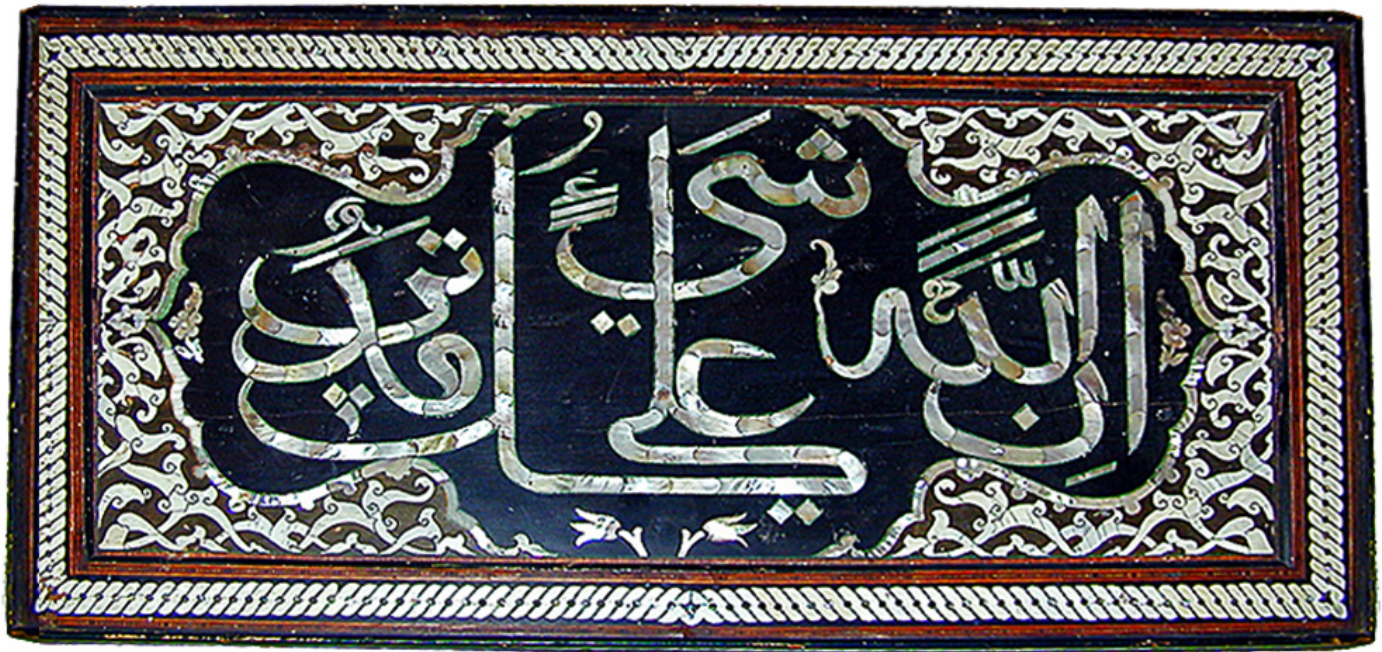 اِن الله على كل شىء قدير